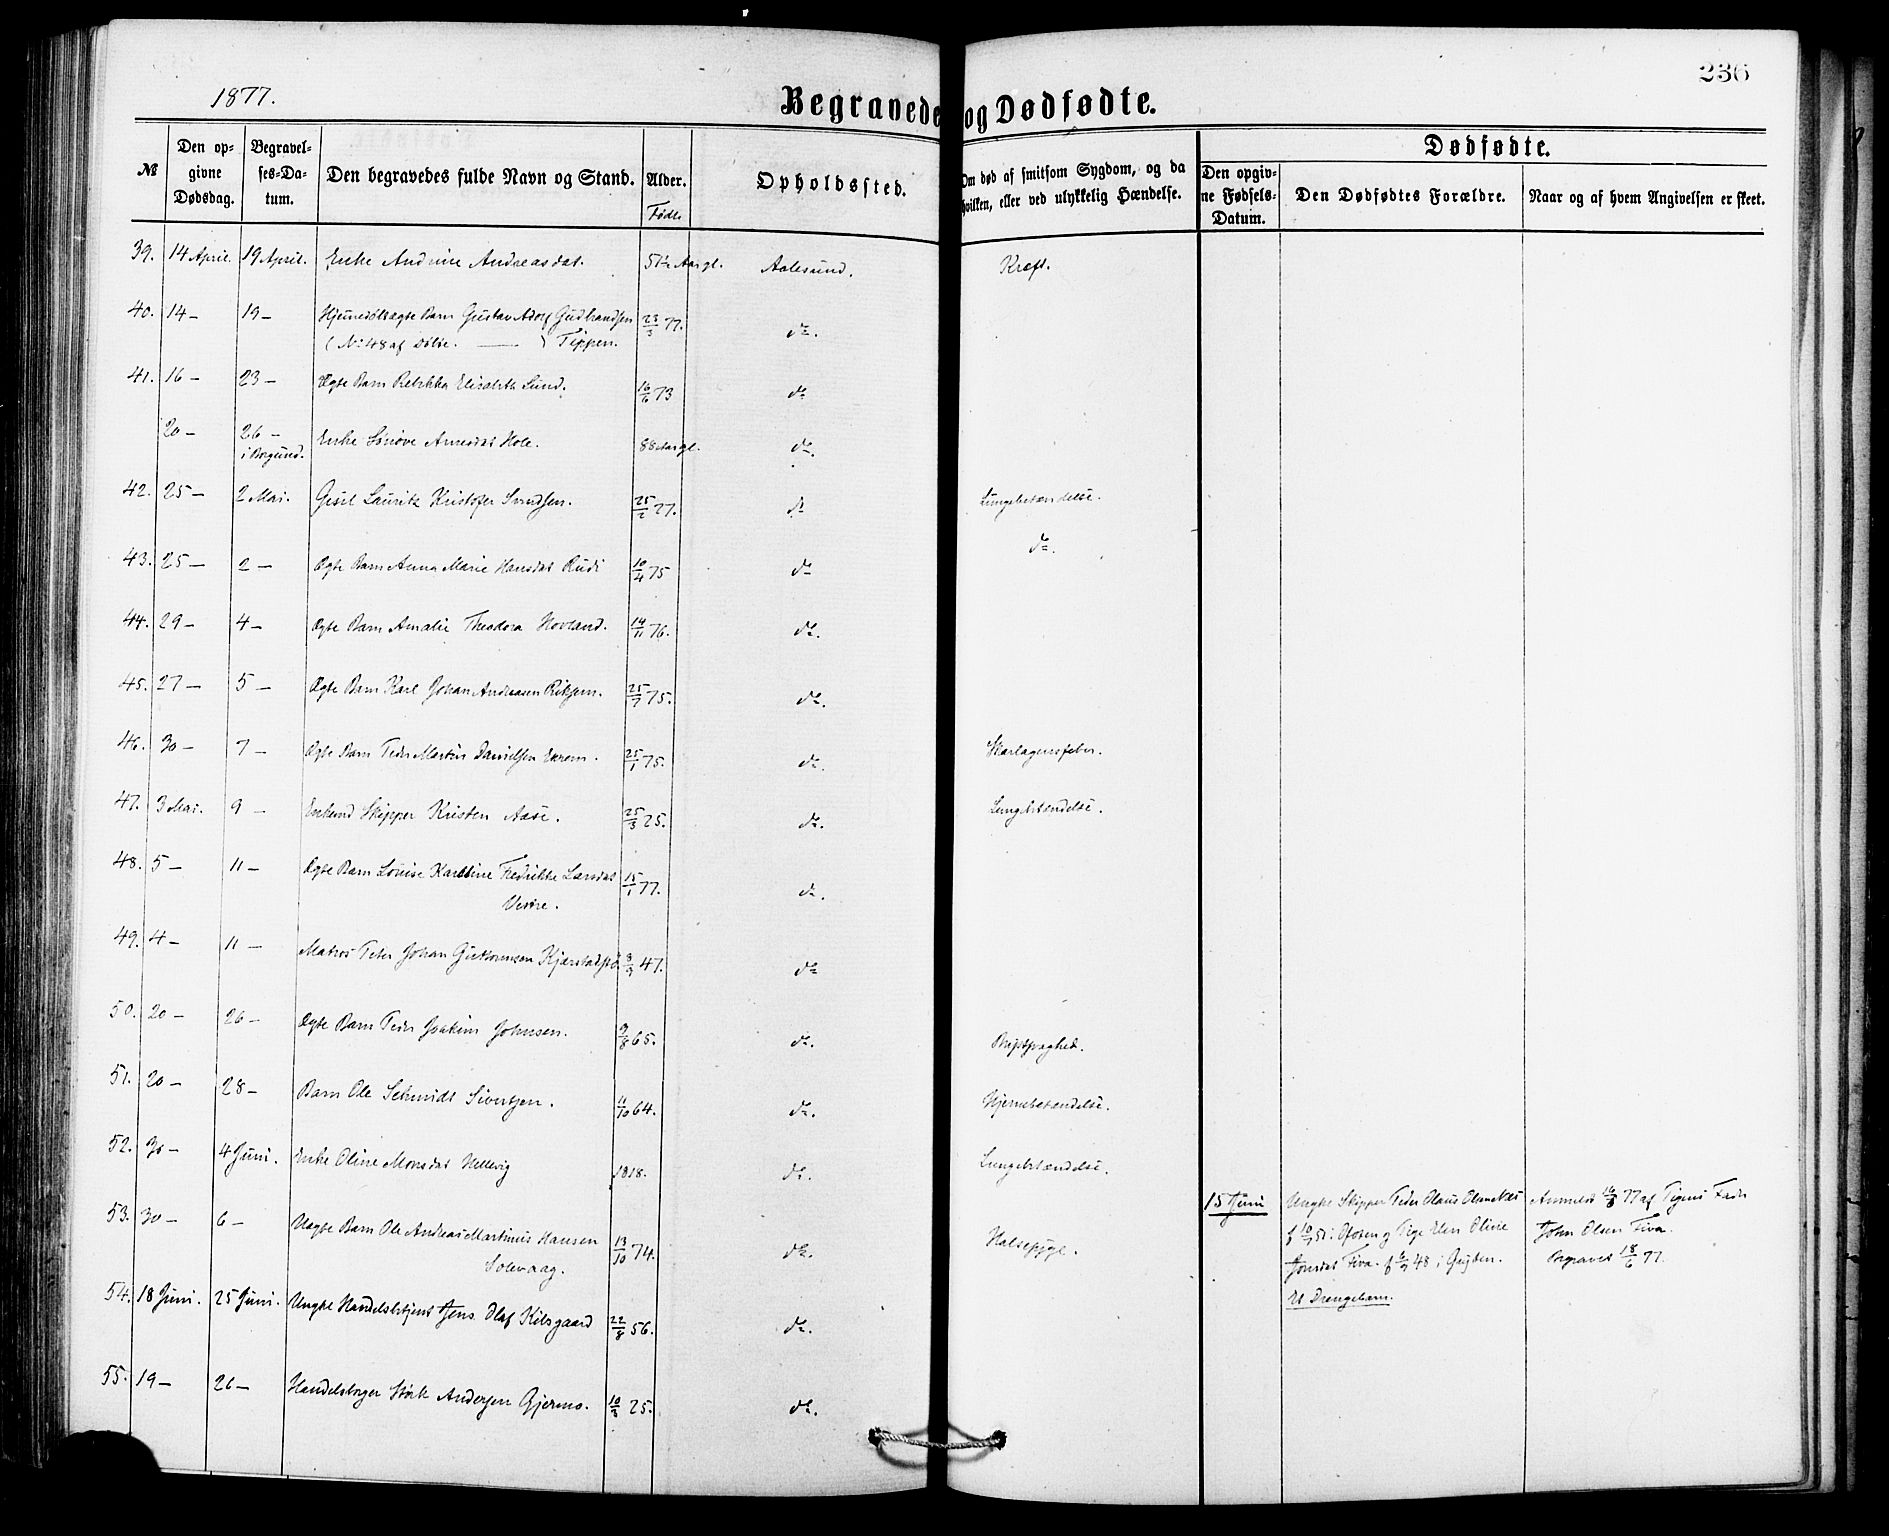 236
1877.
Begravede og Dødfødte.
№
Den op-
givne
Dødsdag.
Begravel-
ses-Da-
tum.
Den begravedes fulde Navn og Stand.
Alder.
Født.
Opholdssted.
Om død af smitsom Sygdom, og da
hvilken, eller ved ulykkelig Hændelse.
Dødfødte.
Den opgiv-
ne Fødsels-
Datum.
Den Dødfødtes Forældre.
Naar og af hvem Angivelsen er skeet.
39. 14 April. 19 April. Enke Andrine Andreasdat. 51½ Aar gl. Aalesund. Kræft.
40. 14 – 19 – Hjemedøbt ægte Barn Gustav Adolf Gudbrandsen 23/3 77. do.
(No 48 af Døbte. —— ) Tippen.
41. 16 – 23 – Ægte Barn Rebekka Elisabeth Lund. 16/6 73 do
20 – 26 – Enke Sønove Arnesdat Hole. 88 Aar gl. do.
i Borgund.
42. 25 – 2 Mai. Gesel Lauritz Kristofer Svendsen. 25/2 27. do Lungebetændelse.
43. 25 – 2 – Ægte Barn Anna Marie Hansdat Rudi 10/4 75 do do.
44. 29 – 4 – Ægte Barn Amalie Theodora Hovland. 14/11 76. do.
45. 27 – 5 – Ægte Barn Karl Johan Andreasen 25/7 75. do.
46. 30 – 7 – Ægte Barn Peder Martin Danielsen 25/1 75. do. Skarlagensfeber.
47. 3 Mai. 9 – Enkemd Skipper Kristen Aase. 25/3 25. do. Lungebetændelse.
48. 5 – 11 – Ægte Barn Lovise Karoline Fredrikke Larsdat 15/1 77. do.
Vestre.
49. 4 – 11 – Matros Peter Johan Guttormsen 8/9 47. do
50. 20 – 26 – Ægte Barn Peder Joakim Johnsen. 9/8 65. do. Brystsvaghed.
51. 20 – 28 – Barn Ole Schmidt Sivertsen. 11/10 64. do. Hjernebetændelse.
52. 30 – 4 Juni. Enke Oline Monsdat Hellevig 1818. do. Lungebetændelse.
53. 30 – 6 – Uægte Barn Ole Andreas Martinius Hansen 13/10 74. do. Halsesyge.
Solevaag.
15 Juni Ungke Skipper Peder Olaus
f. i og Pige Elen Oline
Jonsdat Tiva. f. 48 i
Et Drengebarn.
Anmeldt 16/6 77 af Pigens Fader
John Olsen Tiva.
Begravet 18/6 77.
54. 18 Juni. 25 Juni. Ungke Handelsbetjent Jens Olaf Kilsgaard 22/8 56. do.
55. 19 – 26 – Handelsborger Andersen Gjermo. 10/3 25. do.